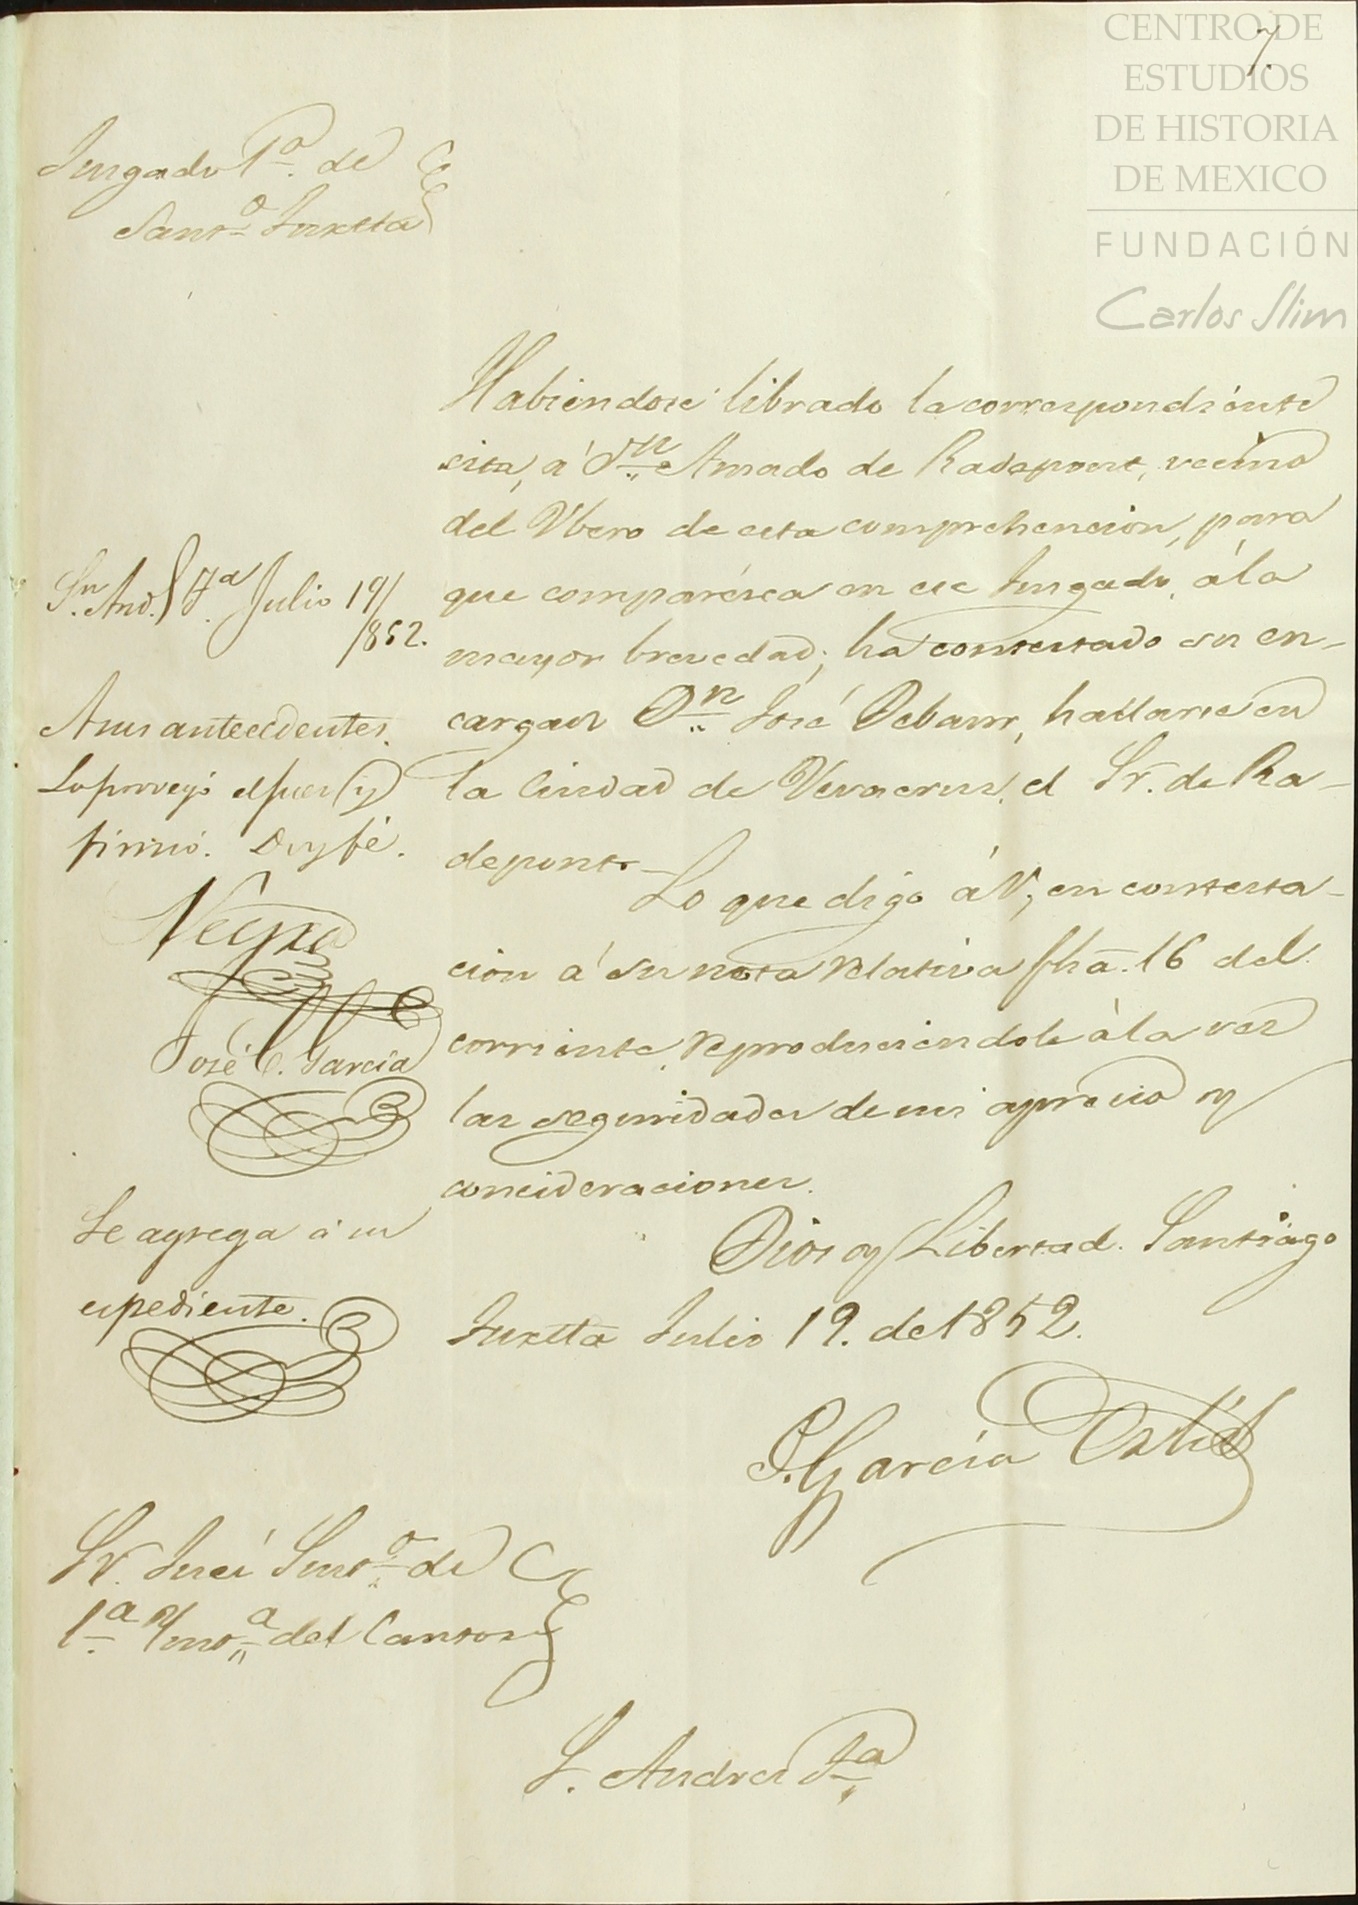 7.
CENTRO DE
ESTUDIOS
DE HISTORIA
DE MEXICO
FUNDACIÓN
Carlos Slim
Jusgado 1º. de
Sanⁿᵒ Tuxtla
Habiendose librado la correspondiénte
cita, á Dⁿ Amado de Radepont, vecino
del Ubero de esta comprehencion, para
que comparésca en ese Jusgado, á la
mayor brevedad; ha contestado su en-
cargado Dⁿ José Debaur, hallarse en
la Ciudad de Veracrus, el Sr. de Ra-
depont.
Lo que digo á V, en contesta-
cion á su nota relativa fhā. 16 del
corriente, reproduciendole á la ves
las seguridades de mi aprecio y
concideraciones.
Dios y Libertad. Santiago
Tuxtla Julio 19. de 1852.
P. García Ortíz
Sⁿ. And. Tª Julio 19/
/852.
A sus antecedentes.
Lo proveyó el jues y
firmó. Doy fé.
José C. García
Se agrega á su
espediente.
Sr. Jues de
1ª Ynsª del Canton
S. Andres Tª